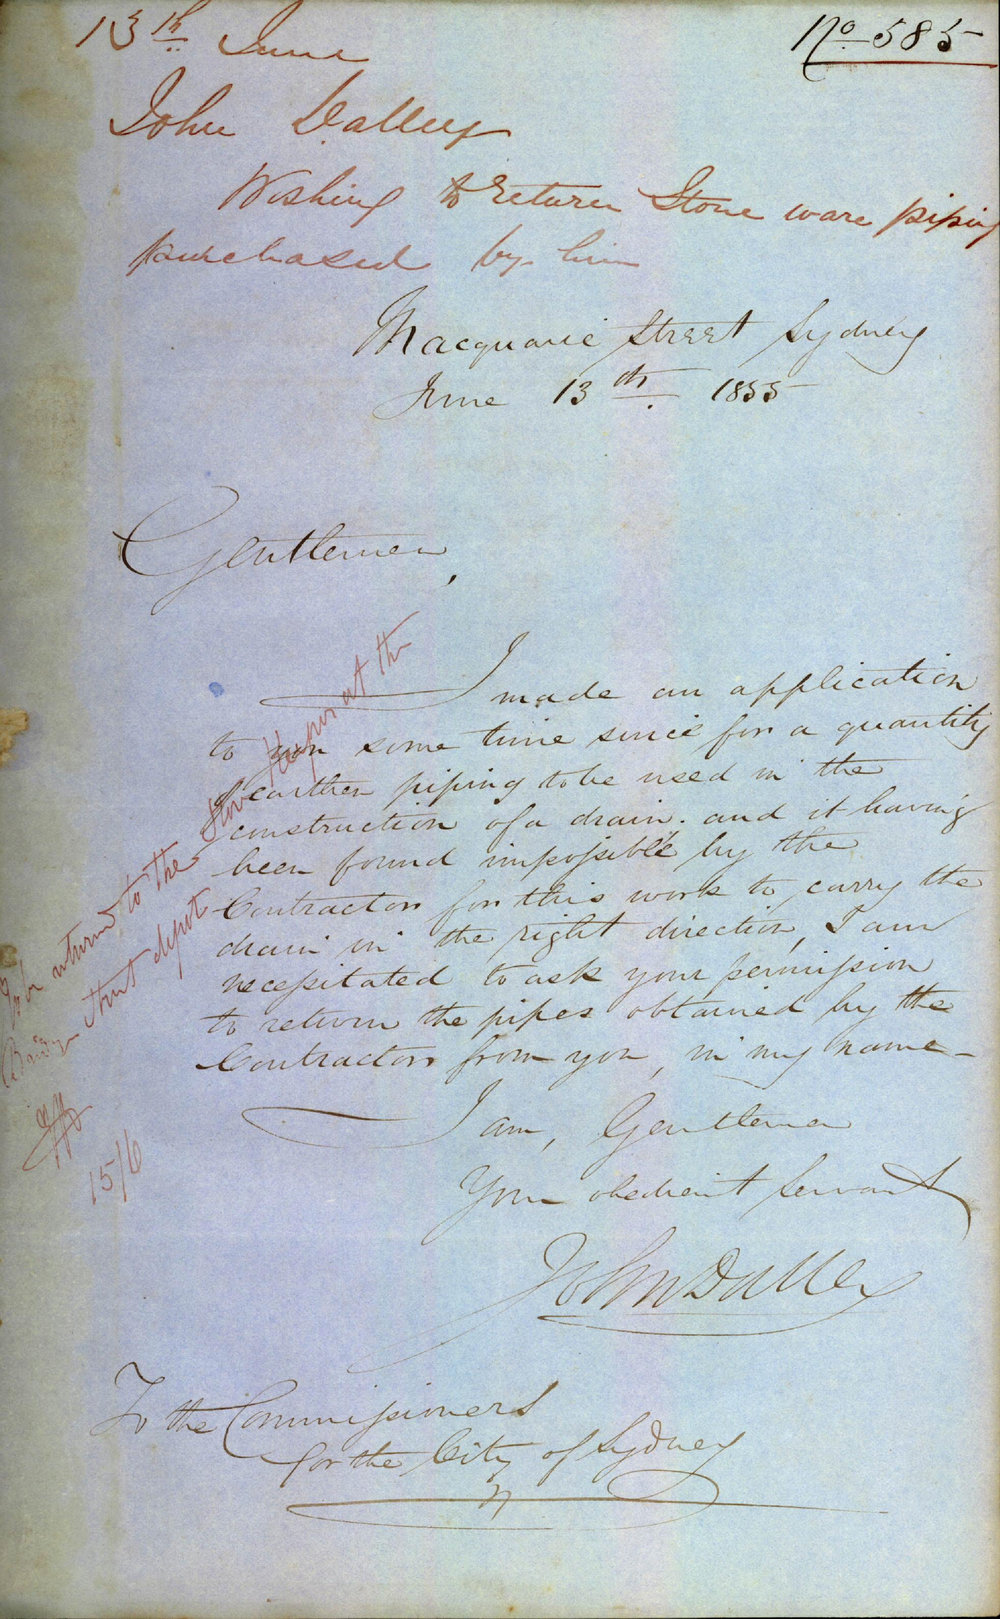 13th June
No 585
John Dalley
Wishing to return Stone ware piping
purchased by him
Macquarie Street Sydney
June 13th 1855
Gentlemen,
I made an application
to you some time since for a quantity
of earthen piping to be used in the
construction of a drain. and it having
been found impossible by the
Contractor for this work to carry the
drain in the right direction, I am
necessitated to ask your permission
to return the pipes obtained by the
Contractor from you, in my name -
I am, Gentlemen
Your obedient Servant
John Dalley
To the Commissioners
for the City of Sydney
To be returned to the Store Keeper at the
Street depot
15/6